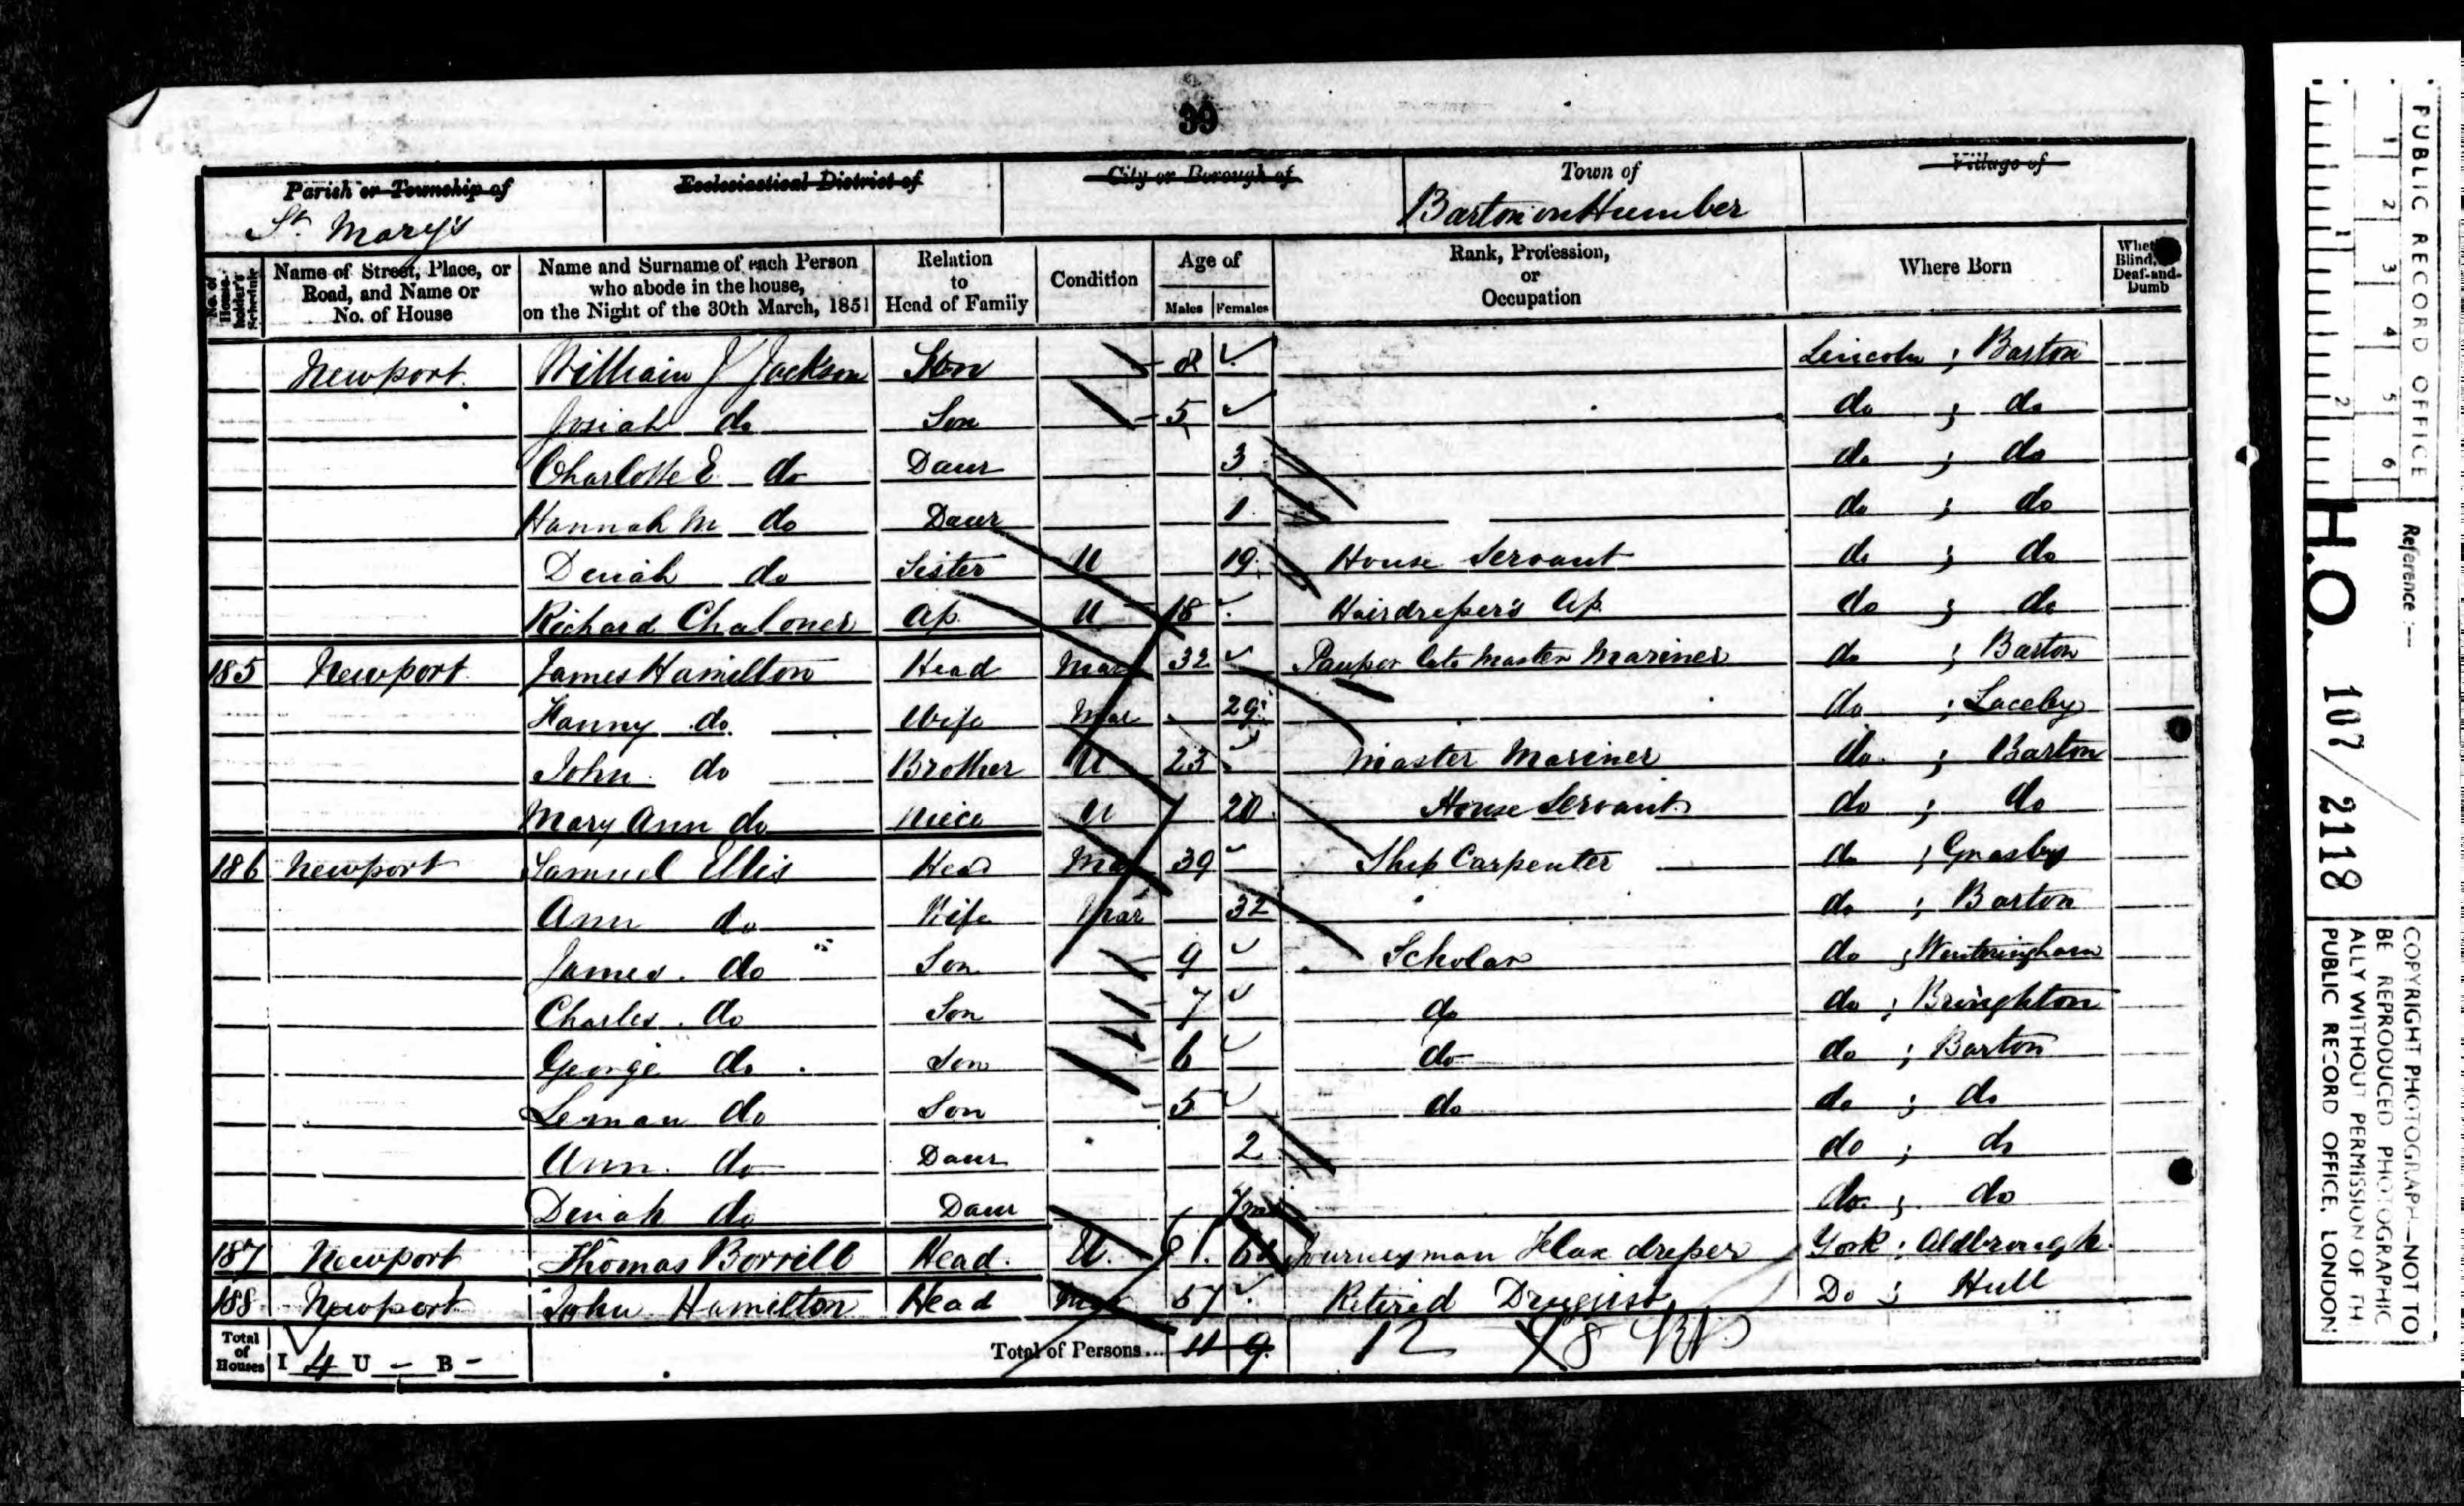 39
Parish or Township of
St. Mary's
Ecclesiastical District of
City or Borough of
Town of
Barton on Humber
Village of
No. of House-holder's Schedule
Name of Street, Place, or Road, and Name or No. of House
Name and Surname of each Person who abode in the house, on the Night of the 30th March, 1851
Relation to Head of Family
Condition
Age of
Males
Females
Rank, Profession, or Occupation
Where Born
Blind, Deaf-and-Dumb
Newport William J Jackson Son 8 Lincoln ; Barton
Josiah do Son 5 do ; do
Charlotte E do Daur 3 do ; do
Hannah M do Daur 1 do ; do
Dinah do Sister U 19 House Servant do ; do
Richard Chaloner Ap. U 18 Hairdresser's Ap. do ; do
185 Newport James Hamilton Head Mar 32 Pauper late Master Mariner do ; Barton
Fanny do Wife Mar 29 do ; Laceby
John do Brother U 23 Master Mariner do ; Barton
Mary Ann do Niece U 20 House Servant do ; do
186 Newport Samuel Ellis Head Mar 39 Ship Carpenter do ;
Ann do Wife Mar 32 do ; Barton
James do Son 9 Scholar do ; Winteringham
Charles do Son 7 do do ; Bringhton
George do Son 6 do do ; Barton
Leman do Son 5 do do ; do
Ann do Daur 2 do ; do
Dinah do Daur do ; do
187 Newport Thomas Borrill Head U. 61 Journeyman Flax dresser York ; Aldbrough
188 Newport John Hamilton Head 57 Retired Druggist Do ; Hull
Total of Houses I 4 U - B -
Total of Persons... 11 9 12 8
PUBLIC RECORD OFFICE
1 2 3 4 5 6
1 2
Reference :-
H.O. 107/2118
COPYRIGHT PHOTOGRAPH—NOT TO
BE REPRODUCED PHOTOGRAPHIC
ALLY WITHOUT PERMISSION OF TH
PUBLIC RECORD OFFICE, LONDON